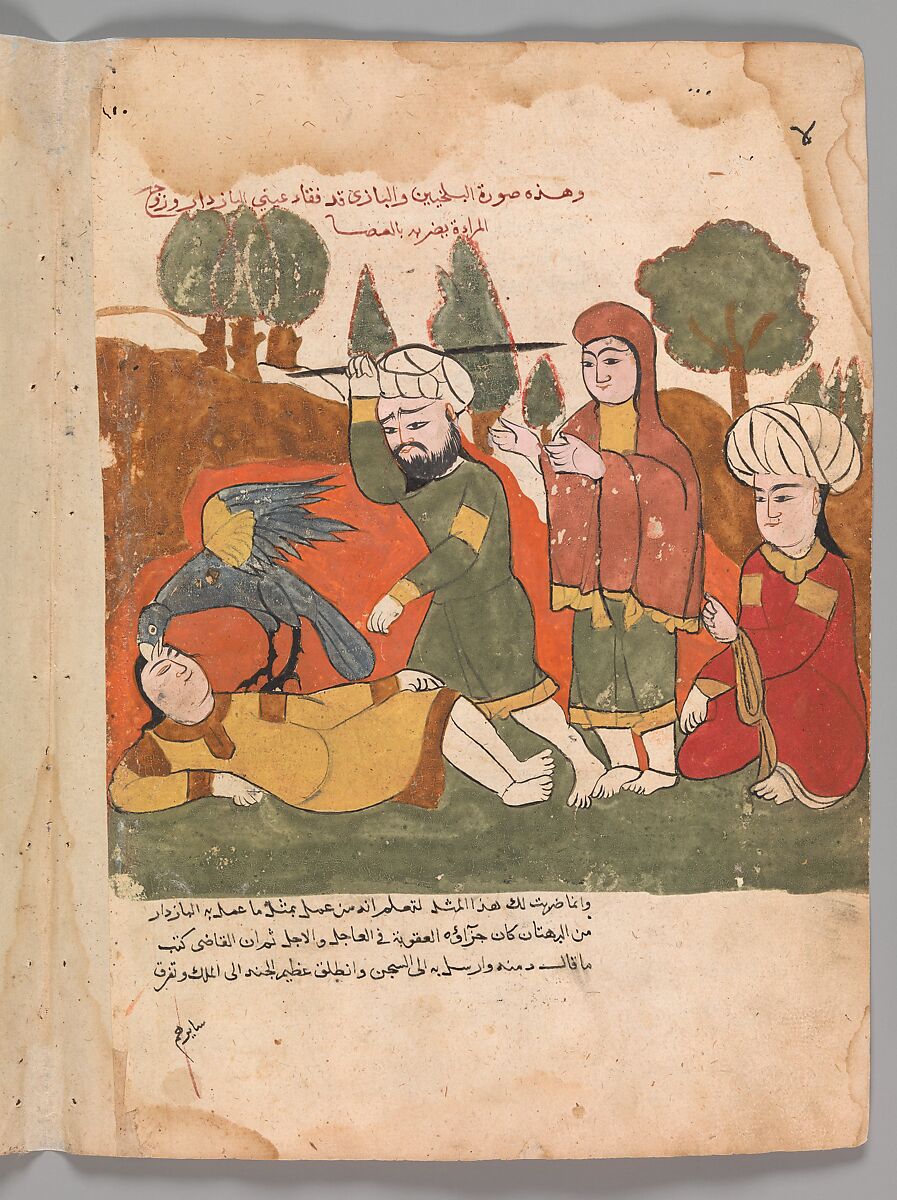 وهذه صورة البلخيين والبازي قد فقاء عيني البازدار وزوج
المراءة يضربه بالعصا
وانما ضربت لك هذا المثل لتعلم انه من عمل بمثل ما عمل به البازدار
من البهتان كان جزآؤه العقوبة في العاجل والاجل ثم ان القاضي كتب
ما قال دمنه وارسل به الى السجن وانطلق عظيم الجند الى الملك وتفرق
سايرهم